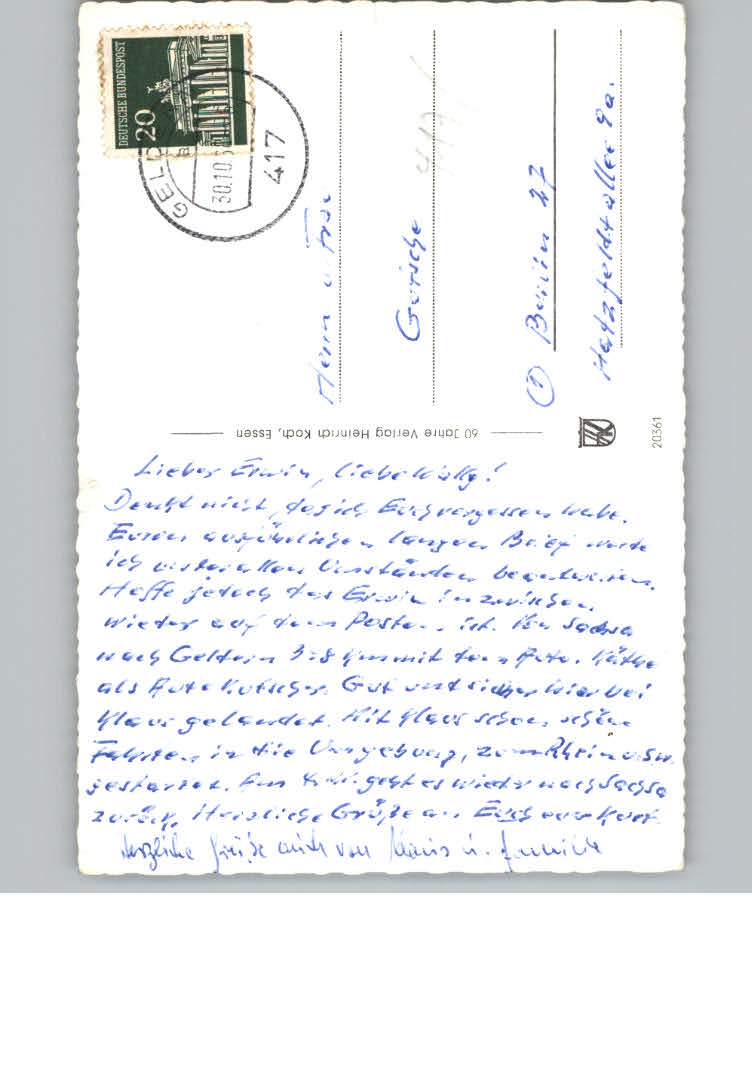 DEUTSCHE BUNDESPOST
20
GELD
30.10.
417
Herrn u. Frau
Gorsche
① Berlin 27
Hatzfeldtallee 9a.
60 Jahre Verlag Heinrich Koch, Essen
20361
Lieber Erwin, liebe Wally!
Denkt nicht, daß ich Euch vergessen habe.
Euren ausführlichen langen Brief werde
ich unter allen Umständen beantworten.
Hoffe jedoch das Erwin inzwischen
wieder auf dem Posten ist. Von Sachsa
nach Geldern 328 km mit dem Auto. Käthe
als Autokutscher. Gut und sicher hier bei
Klaus gelandet. Mit Klaus schon schöne
Fahrten in die Umgebung, zum Rhein u.s.w.
gestartet. Am geht es wieder nach Sachsa
zurück. Herzliche Grüße an Euch euer Kurt
Herzliche Grüße auch von Klaus u. Familie